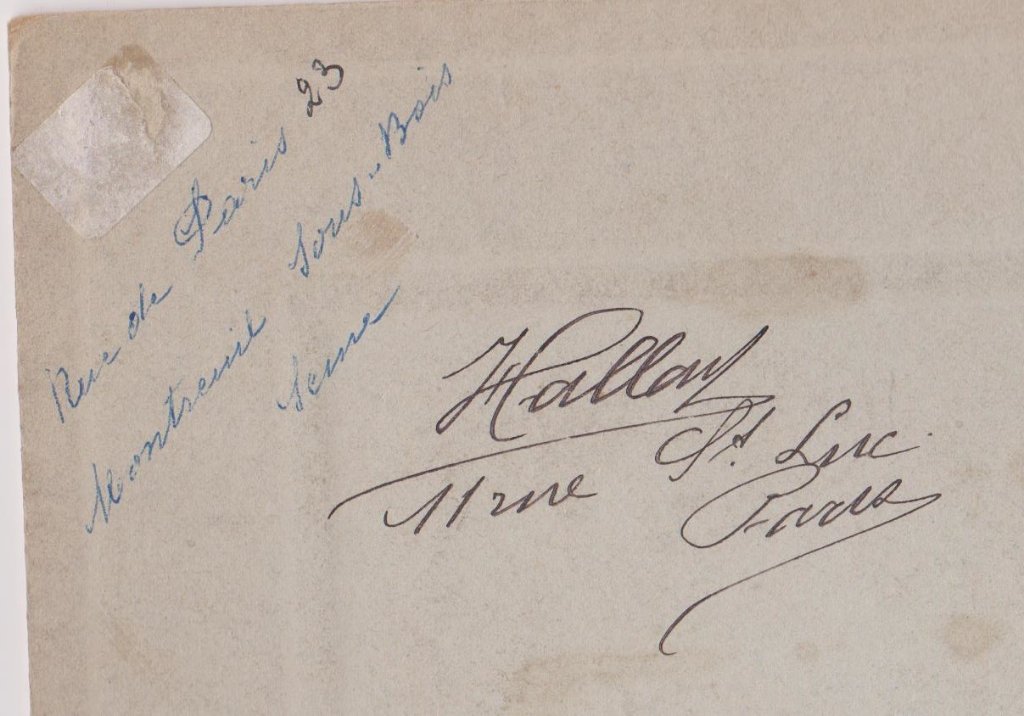 Rue de Paris 23
Montreuil Sous-Bois
Seine
11 rue St. Luc
Paris